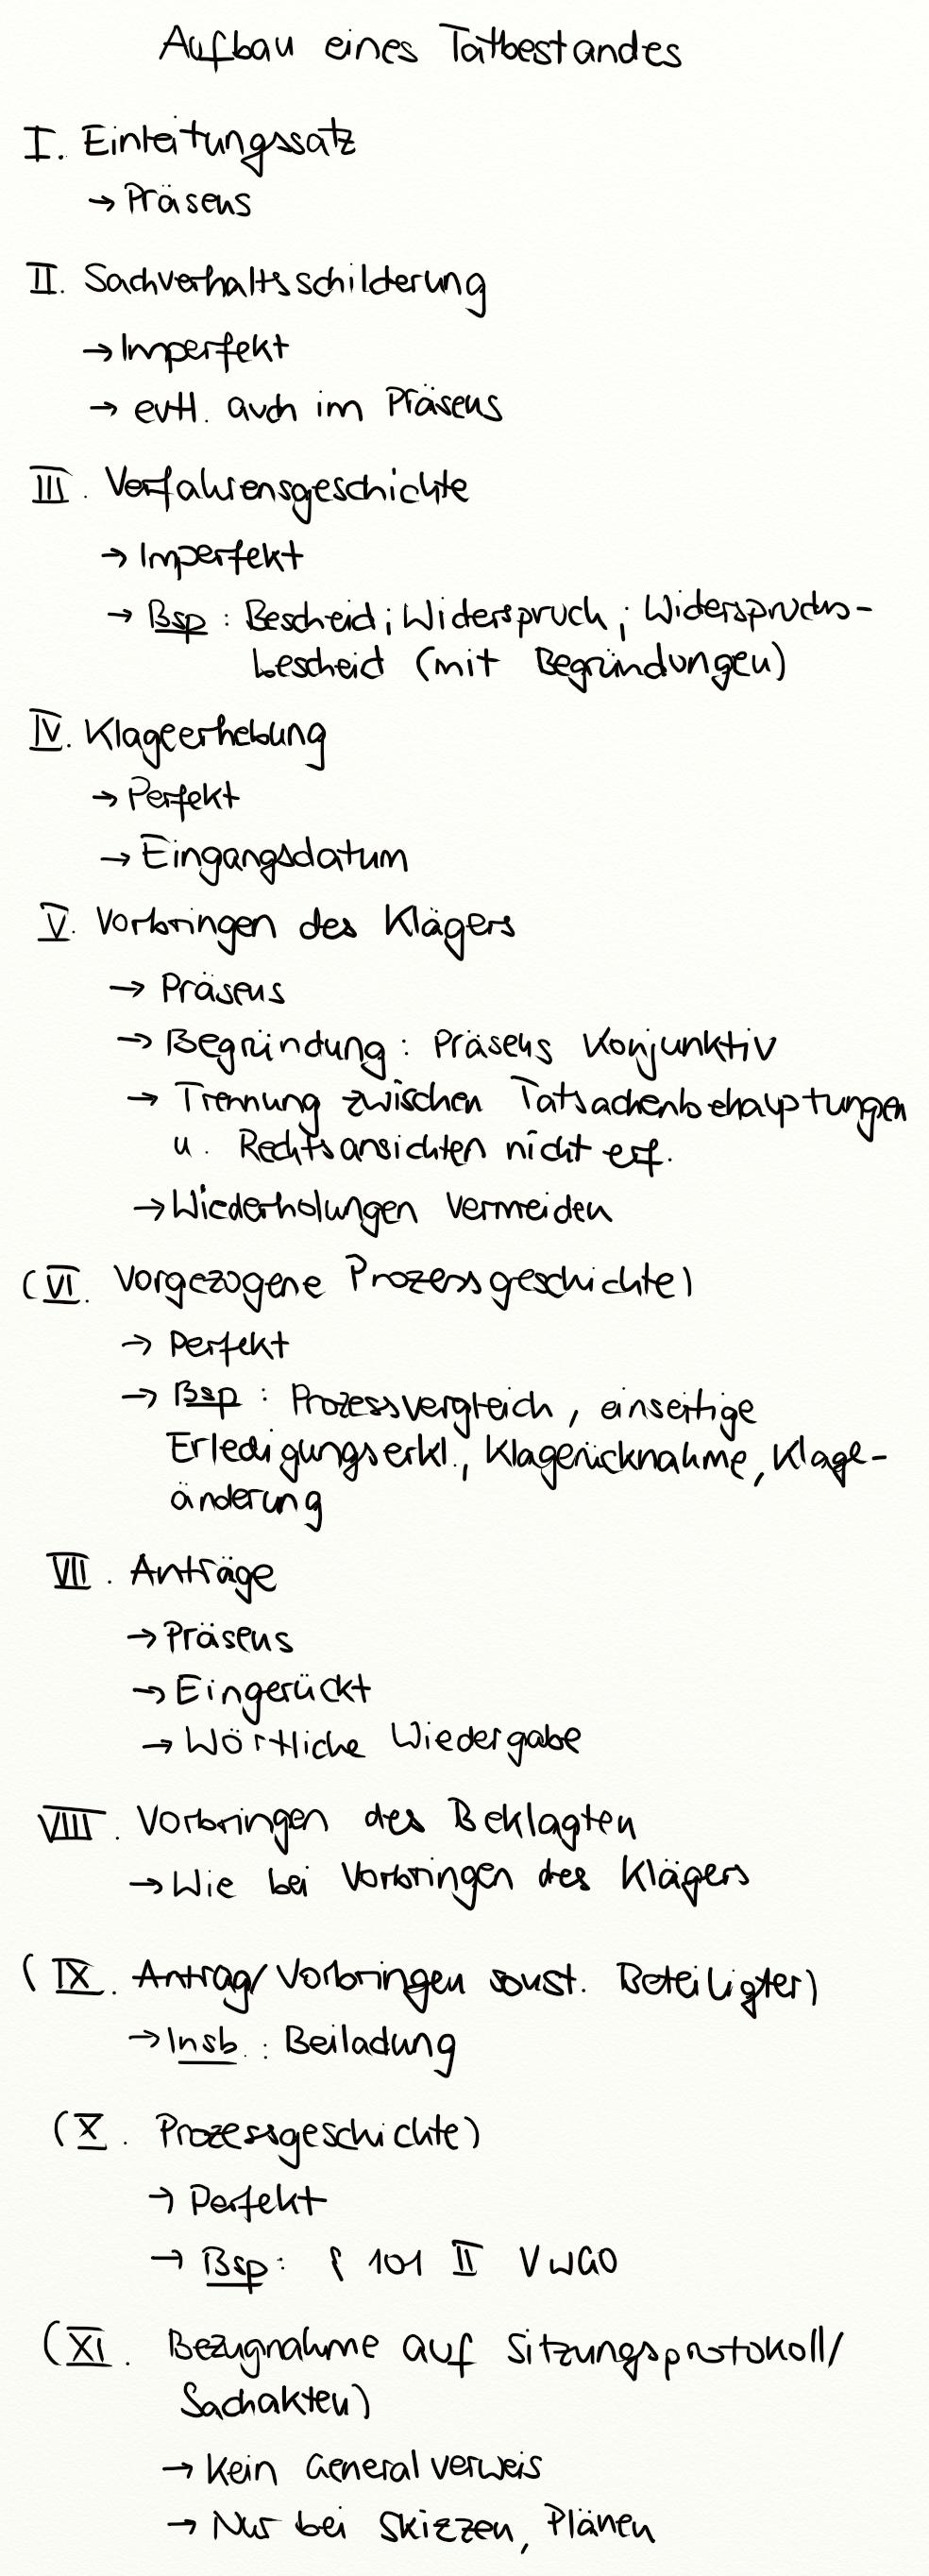 Aufbau eines Tatbestandes
I. Einleitungssatz
→ Präsens
II. Sachverhaltsschilderung
→ Imperfekt
→ evtl. auch im Präsens
III. Verfahrensgeschichte
→ Imperfekt
→ Bsp: Bescheid; Widerspruch; Widerspruchs-
bescheid (mit Begründungen)
IV. Klageerhebung
→ Perfekt
→ Eingangsdatum
V. Vorbringen des Klägers
→ Präsens
→ Begründung: Präsens Konjunktiv
→ Trennung zwischen Tatsachenbehauptungen
u. Rechtsansichten nicht erf.
→ Wiederholungen vermeiden
(VI. Vorgezogene Prozessgeschichte)
→ Perfekt
→ Bsp: Prozessvergleich, einseitige
Erledigungserkl., Klagerücknahme, Klage-
änderung
VII. Anträge
→ Präsens
→ Eingerückt
→ Wörtliche Wiedergabe
VIII. Vorbringen des Beklagten
→ Wie bei Vorbringen des Klägers
(IX. Antrag/Vorbringen sonst. Beteiligter)
→ Insb.: Beiladung
(X. Prozessgeschichte)
→ Perfekt
→ Bsp: § 101 II VwGO
(XI. Bezugnahme auf Sitzungsprotokoll/
Sachakten)
→ Kein Generalverweis
→ Nur bei Skizzen, Plänen